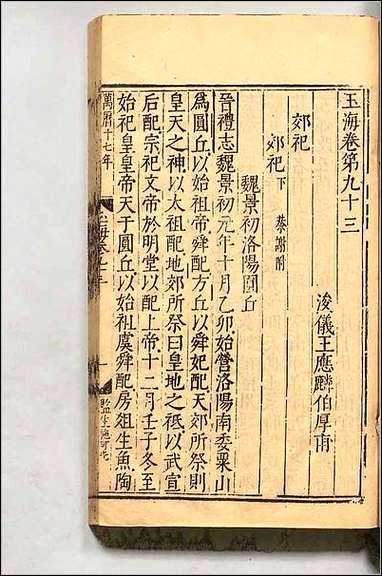 玉海卷第九十三
浚儀王應麟伯厚甫
郊祀
郊祀下 謝附
魏景初洛陽圓丘
晉禮志魏景初元年十月乙卯始營洛陽南委粟山
為圓丘以始祖帝舜配方丘以舜妃配天郊所祭則
皇天之神以太祖配地郊所祭曰皇地之祗以武宣
后配宗祀文帝於明堂以配上帝十二月壬子冬至
始祀皇皇帝天于圓丘以始祖虞舜配房祖生魚陶
萬曆十七年 玉海卷九十三 一 監生施